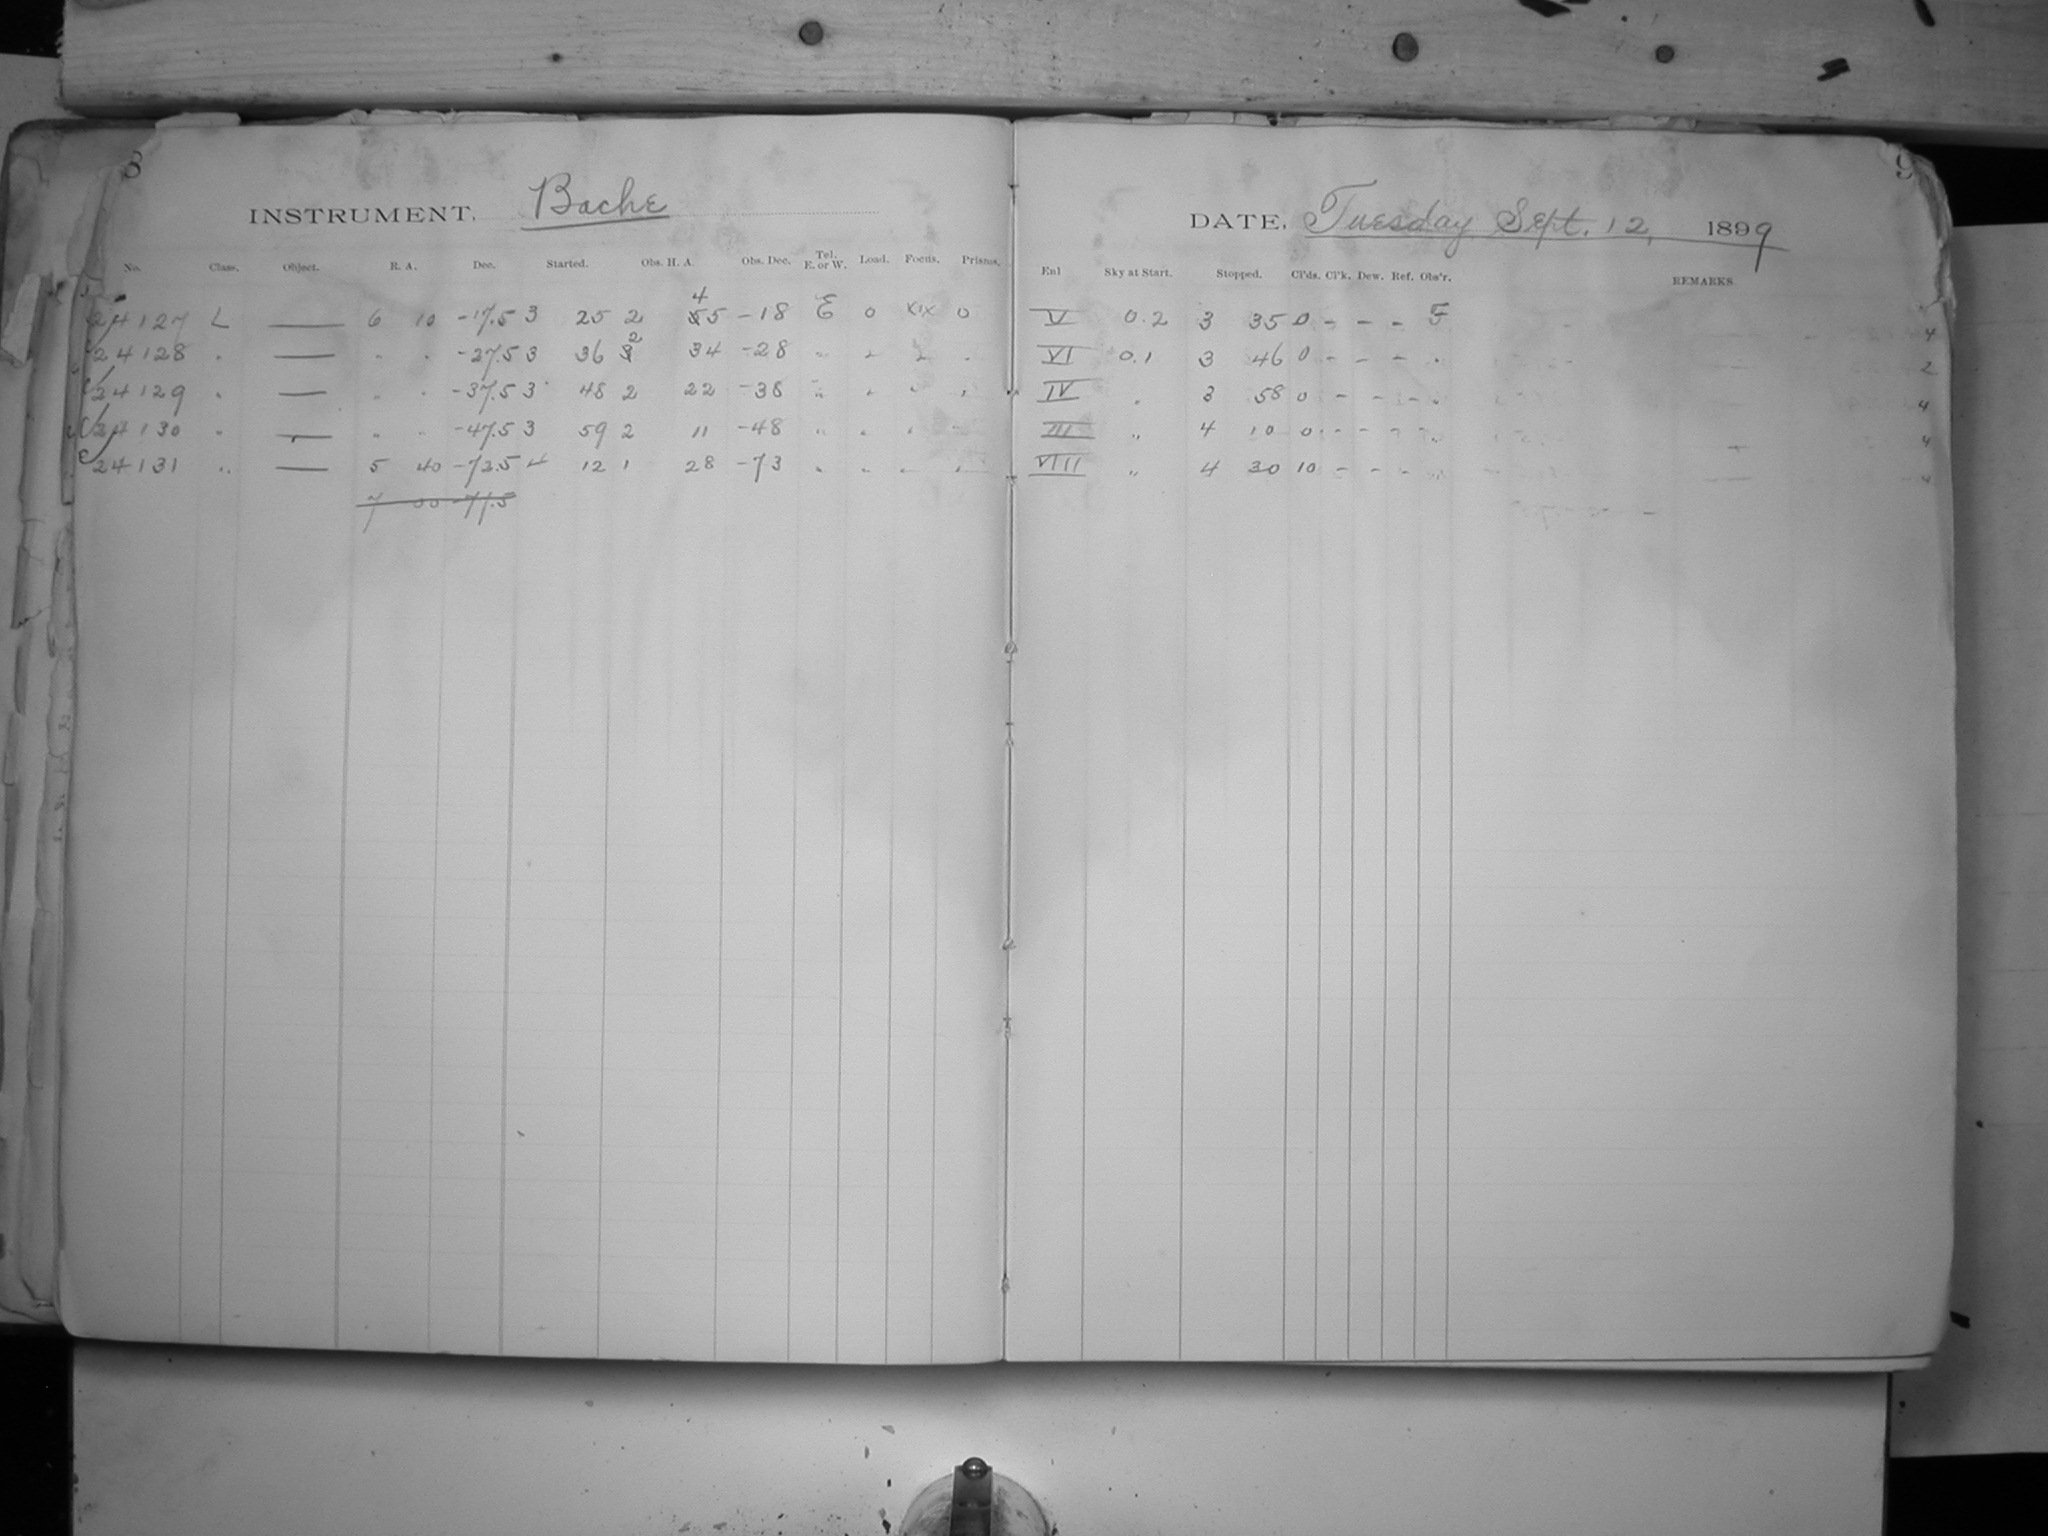 8
INSTRUMENT, Bache
No. Class. Object. R. A. Dec. Started. Obs. H. A. Obs. Dec. Tel. E. or W. Load. Focus. Prisms.
24127 L — 6 10 -17.5 3 25 2 45 -18 E 0 XIX 0
24128 " — " " -27.5 3 36 2 34 -28 " " " "
24129 " — " " -37.5 3 48 2 22 -38 " " " "
24130 " — " " -47.5 3 59 2 11 -48 " " " "
24131 " — 5 40 -72.5 4 12 1 28 -73 " " " "
7 00 -77.5
9
DATE, Tuesday Sept. 12, 1899
Enl Sky at Start. Stopped. Cl'ds. Cl'k. Dew. Ref. Obs'r. REMARKS.
V 0.2 3 35 0 - - - 5
VI 0.1 3 46 0 - - - "
IV " 3 58 0 - - - "
III " 4 10 0 - - - "
VIII " 4 30 10 - - - "